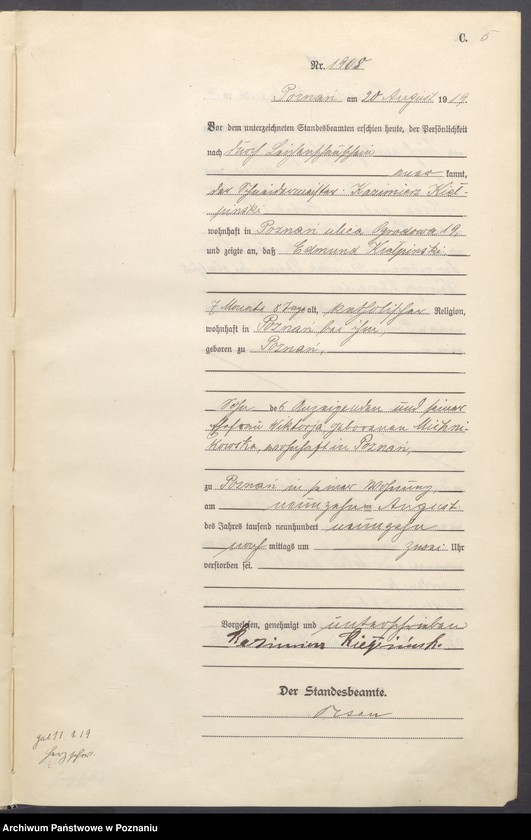 C. 5
Nr. 1908
Poznań am 20 August 1919.
Vor dem unterzeichneten Standesbeamten erschien heute, der Persönlichkeit
nach durch Leichenschauschein
aner kannt,
der Schneidermeister Kazimierz Kieł-
piński
wohnhaft in Poznań ulica Ogrodowa 19,
und zeigte an, daß Edmund Kiełpinski
7 Monate 8 Tage alt, katholischer Religion,
wohnhaft in Poznań bei ihm,
geboren zu Poznań,
Sohn des Anzeigenden und seiner
Ehefrau Wiktorja, geborenen Michni-
kowska, wohnhaft in Poznań,
zu Poznań in seiner Wohnung,
am neunzehn ten August
des Jahres tausend neunhundert neunzehn
nach mittags um zwei Uhr
verstorben sei.
Vorgelesen, genehmigt und unterschrieben
Kazimierz Kiełpiński.
Der Standesbeamte.
geb. 11.1.19
Archiwum Państwowe w Poznaniu